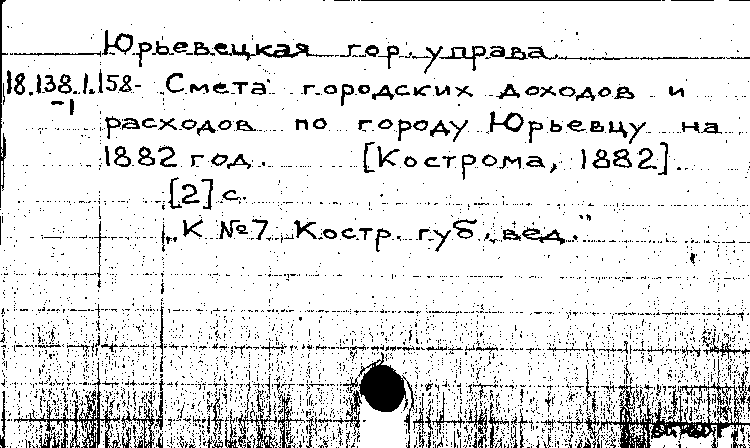 Юрьевецкая гор. управа.
18.138.1.158- Смета городских доходов и
-1
расходов по городу Юрьевцу на
1882 год. [Кострома, 1882].
[2] с.
„К №7 Костр. губ. вед."